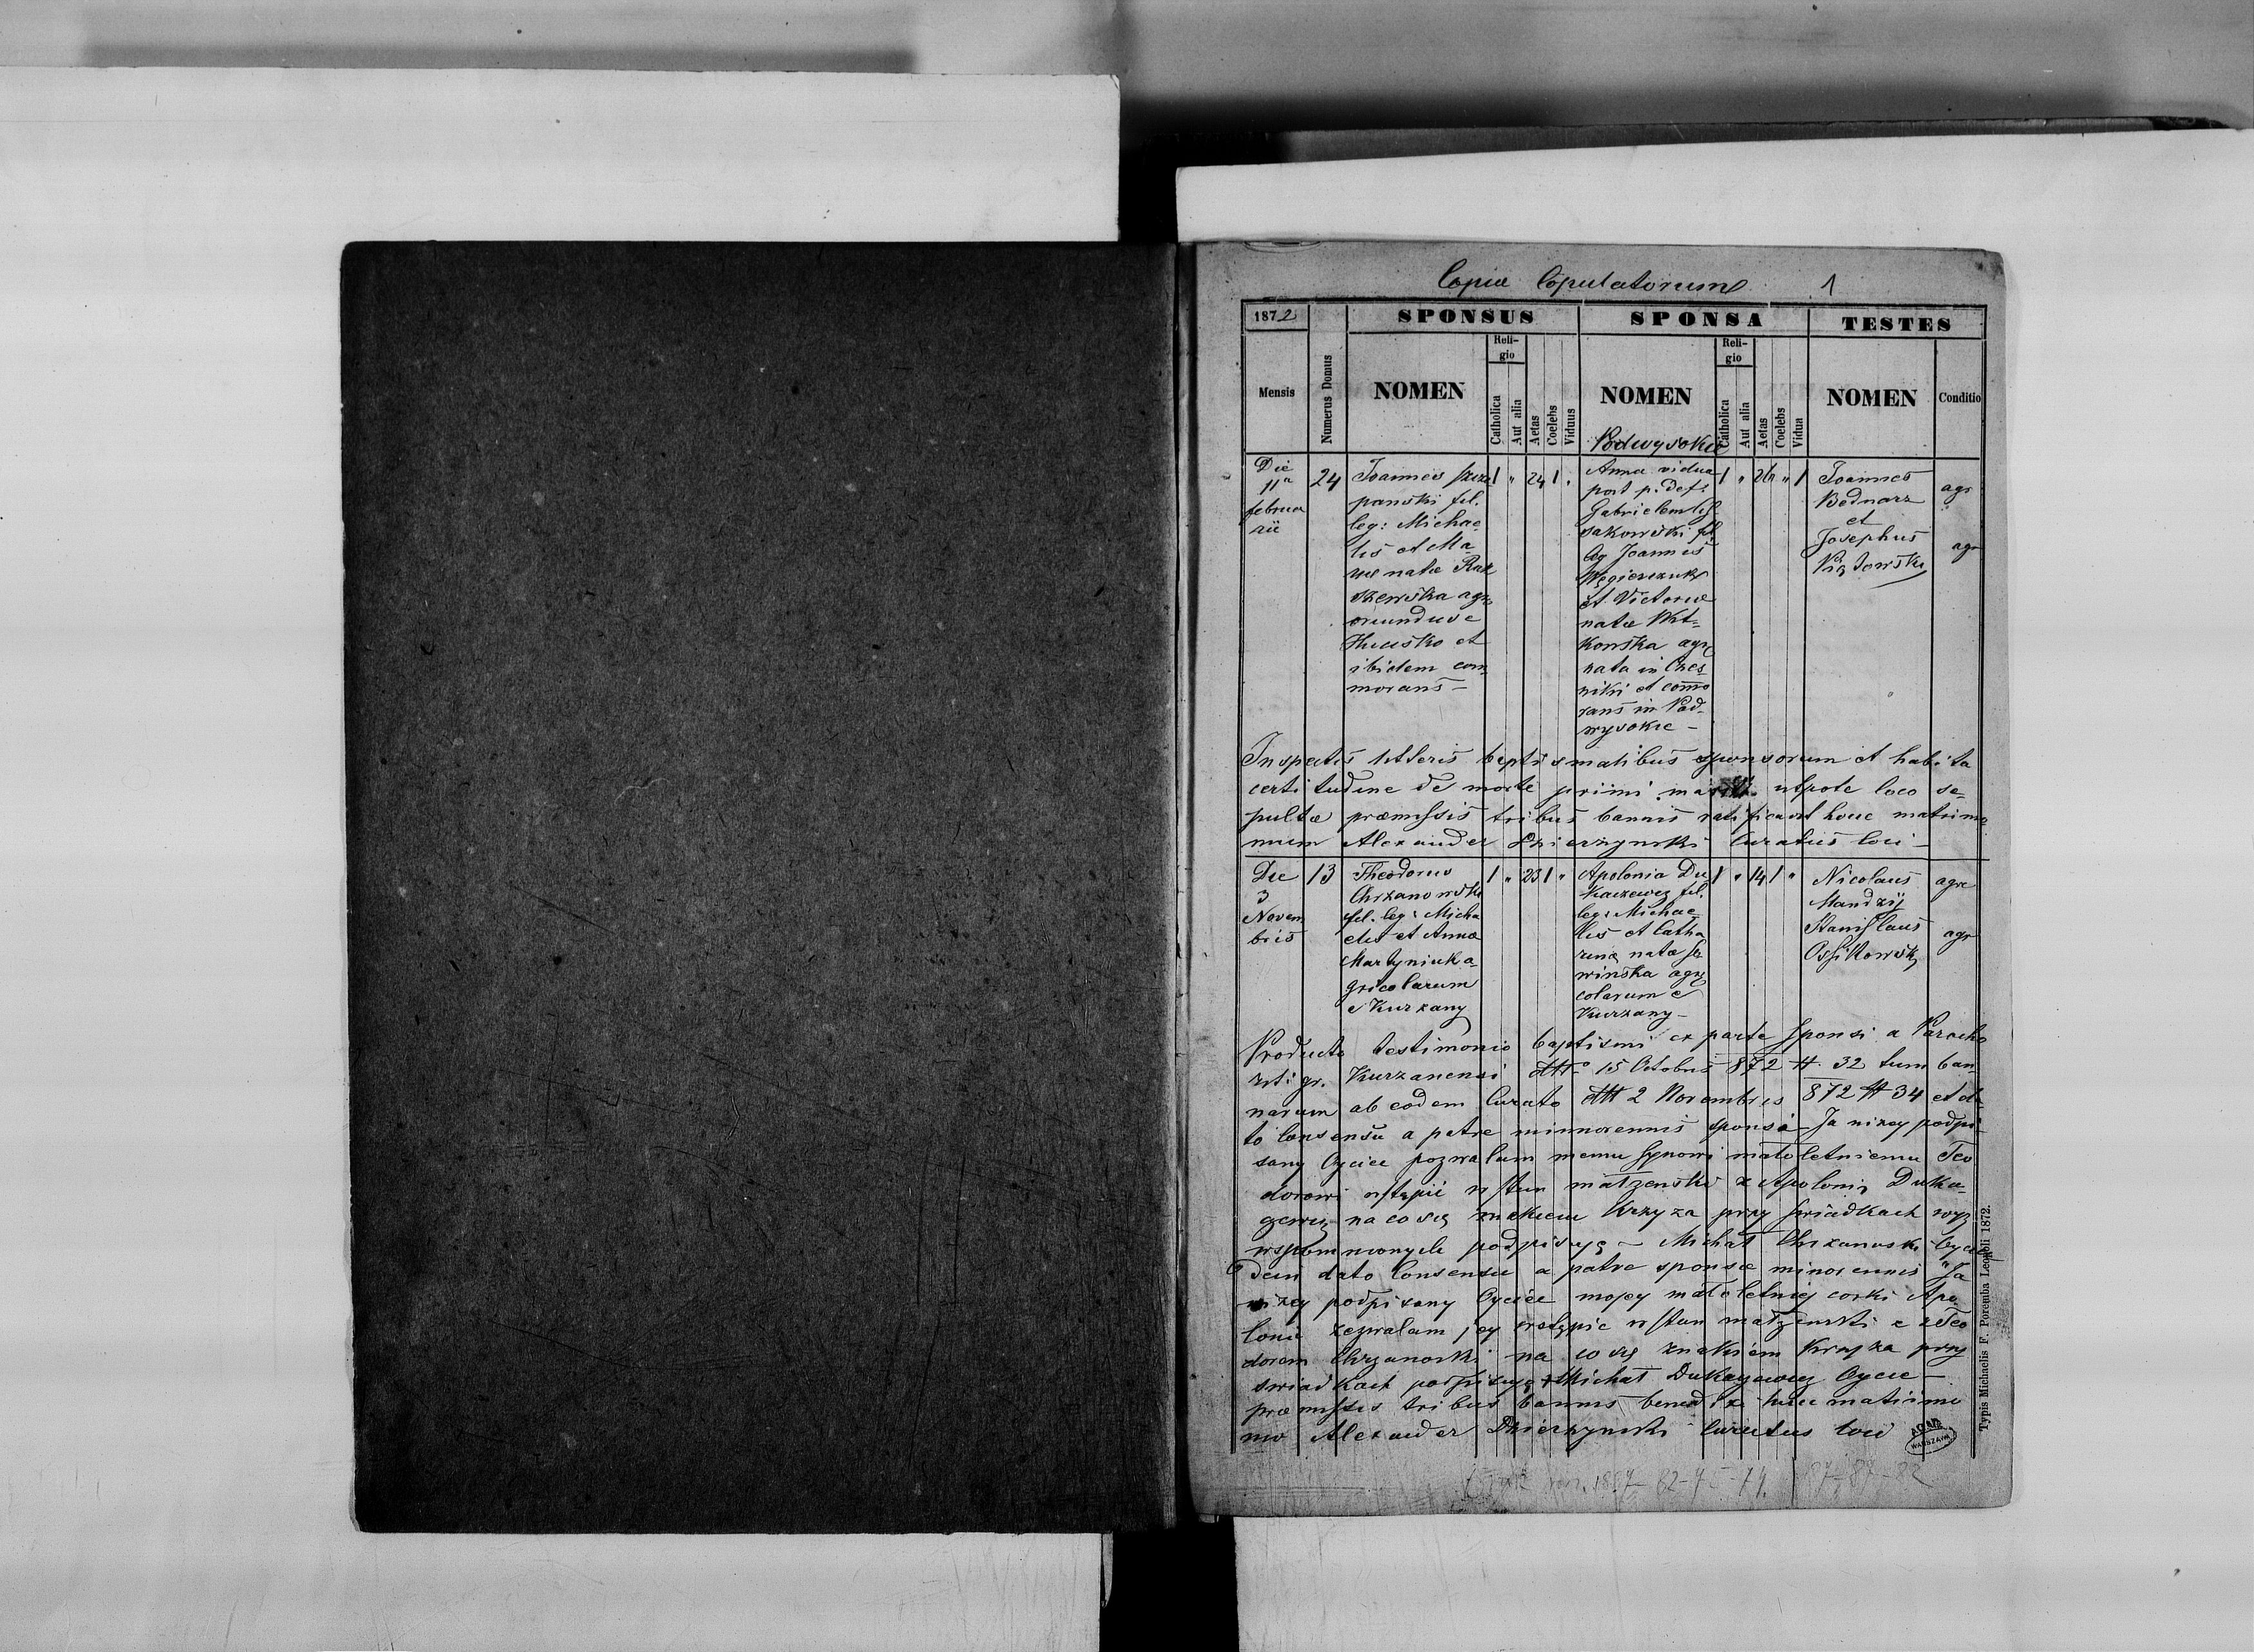 Copia Copulatorum 1
1872 SPONSUS SPONSA TESTES
Mensis Numerus Domus NOMEN Religio Catholica Aut alia Aetas Coelebs Viduus NOMEN Religio Catholica Aut alia Aetas Coelebs Vidua NOMEN Conditio
Podwysokie
Die
11a
februa
rii
24
Joannes Szcze
panski fil.
leg: Michae
lis et Ma
riae natae
szewska agr
oriundus e
et
ibidem com
morans –
1 " 24 1 "
Anna vidua
post p. def:
Gabrielem
sakowski fil
leg Joannis
Węgierczuk
et Victoriae
natae Wit-
konska agr
nata in Czes
niki et commo
rans in Pod-
wysokie –
1 " 26 " 1
Joannes
Bednarz
et
Josephus
agr
agr
Inspectis litteris baptismalibus sponsorum et habita
certitudine de morte primi mariti utpote loco se-
pultae praemissis tribus bannis ratificavit hoc matrimo
nium Alexander Dzierzynski Curatus loci –
Die
3
Novem
bris
13
Theodorus
Chrzanowski
fil. leg: Micha
elis et Anna
Martyniuk a-
gricolarum
e Kurzany
1 " 23 1 "
Apolonia Du
kaczewcz fil.
leg: Michae-
lis et Catha
rina natae
winska agri
colarum e
Kurzany –
1 " 14 1 "
Nicolaus
Mandzij
Stanislaus
Ossikowski
agr
agr
Producto testimonio baptismi ex parte Sponsi a Parocho
rit: gr. Kurzanensi 15 Octobris 872 # 32 tum ban-
narum ab eodem Curato 2 Novembris 872 # 34 et da
to Consensu a patre minnorennis sponsi – Ja nizey podpi
sany Oyciec pozwalam memu Synowi małoletniemu Teo
dorowi wstąpić w stan małzenski z Apolonią Duka-
gewcz na co się znakiem Krzyza przy swiadkach wyz
wspomnionych podpisuję – Michał Chrzanoski Oyciec
dein dato Consensu a patre sponsae minorennis "Ja
nizey podpisany Oyciec mojey małoletniej corki Apo
lonii zezwalam jey wstąpic w stan małzenski z Teo
dorem Chrzanoski na co się znakiem Krzyza przy
swiadkach podpisuję + Michał Dukayewcz Oyciec –
praemissis tribus bannis benedixi huic matrimo
nio Alexander Dzierzynski Curatus loci
AGAD
WARSZAWA
Typis Michaelis F. Poremba Leopoli 1872.
87-87-82